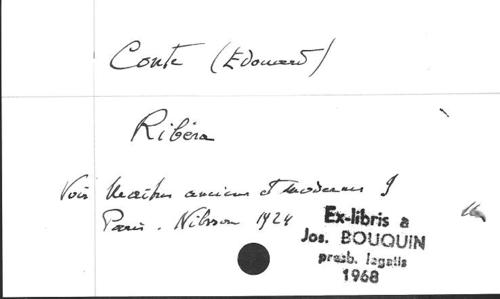 Conte (Edouard)
Ribéra
Voir Maitres anciens et modernes 9
Paris. Nilsson 1924
Ex-libris a
Jos. BOUQUIN
presb. legatis
1968